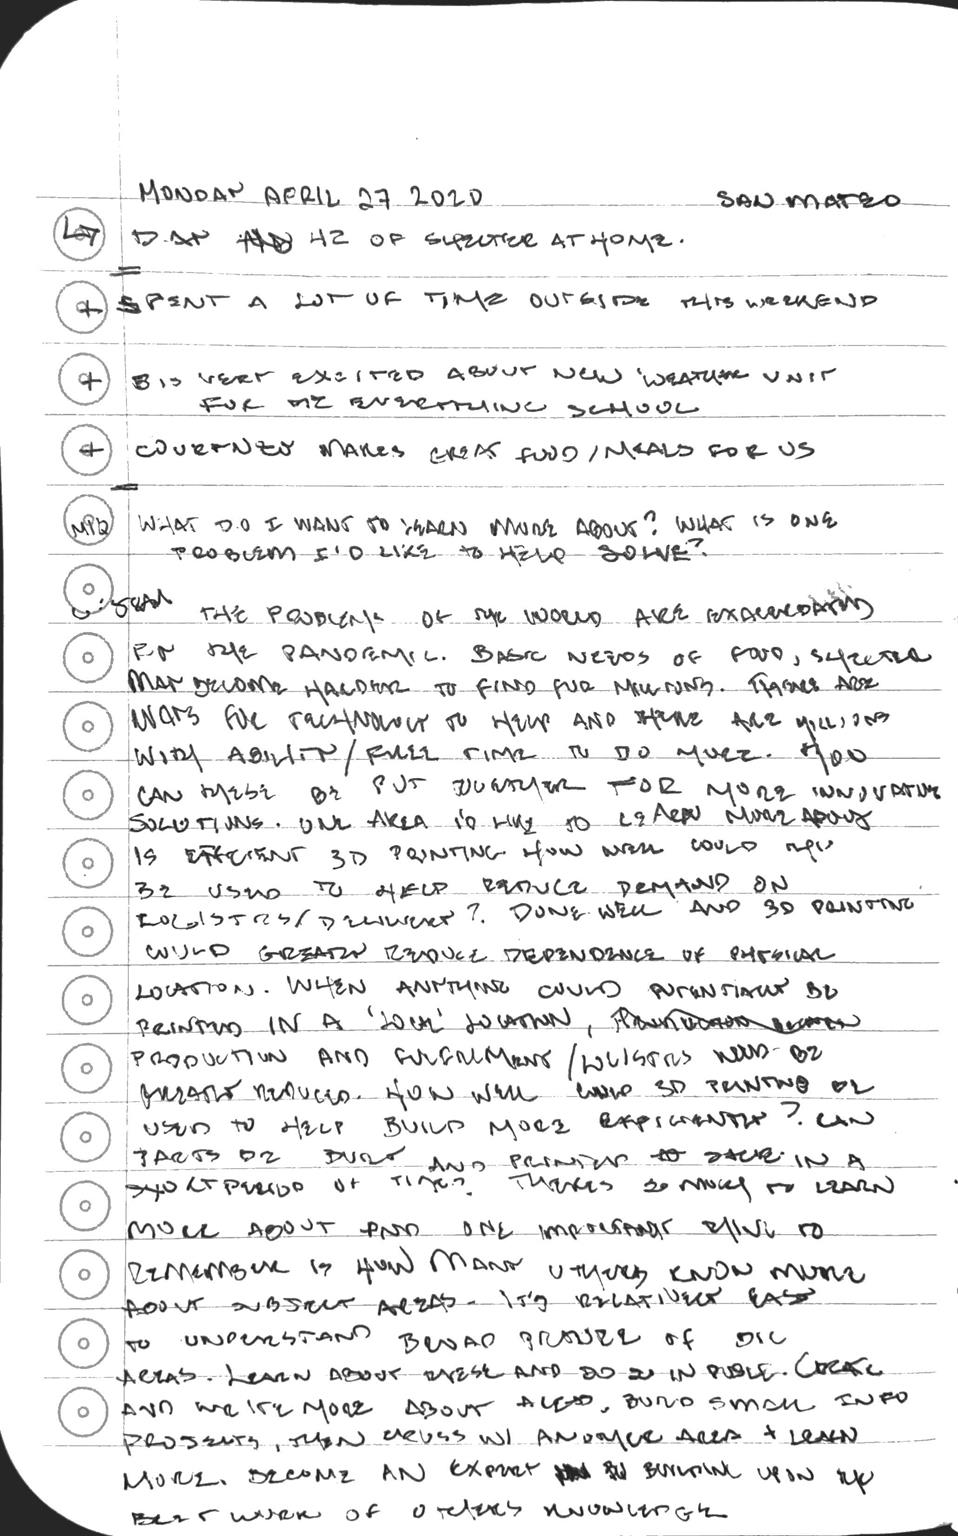 MONDAY APRIL 27 2020 SAN MATEO
DAY 42 OF SHELTER AT HOME.
+ SPENT A LOT OF TIME OUTSIDE THIS WEEKEND
+ B IS VERY EXCITED ABOUT NEW WEATHER UNIT
FOR THE EVERYTHING SCHOOL
+ COURTNEY MAKES GREAT FOOD/MEALS FOR US
MPQ WHAT DO I WANT TO LEARN MORE ABOUT? WHAT IS ONE
PROBLEM I'D LIKE TO HELP SOLVE?
THE PROBLEMS OF THE WORLD ARE EXACERBATED
BY THE PANDEMIC. BASIC NEEDS OF FOOD, SHELTER
MAY BECOME HARDER TO FIND FOR MILLIONS. THERE ARE
WAYS FOR TECHNOLOGY TO HELP AND THERE ARE MILLIONS
WITH ABILITY/FREE TIME TO DO MORE. HOW
CAN THESE BE PUT TOGETHER FOR MORE INNOVATIVE
SOLUTIONS. ONE AREA I'D LIKE TO LEARN MORE ABOUT
IS EFFICIENT 3D PRINTING. HOW WELL COULD THIS
BE USED TO HELP REDUCE DEMAND ON
LOGISTICS/DELIVERY? DONE WELL AND 3D PRINTING
COULD GREATLY REDUCE DEPENDENCE OF PHYSICAL
LOCATION. WHEN ANYTHING COULD POTENTIALLY BE
PRINTED IN A 'LOCAL' LOCATION,
PRODUCTION AND FULFILLMENT/LOGISTICS NEED BE
GREATLY REDUCED. HOW WELL COULD 3D PRINTING BE
USED TO HELP BUILD MORE EFFICIENTLY? CAN
PARTS BE BUILT AND PRINTED IN A
SHORT PERIOD OF TIME? THERES SO MUCH TO LEARN
MORE ABOUT AND ONE IMPORTANT THING TO
REMEMBER IS HOW MANY OTHERS KNOW MORE
ABOUT SUBJECT AREAS. IT'S RELATIVELY EASY
TO UNDERSTAND BROAD OF
AREAS. LEARN ABOUT THESE AND DO SO IN PUBLIC. CREATE
AND WRITE MORE ABOUT ALSO, BUILD SMALL INFO
PROJECTS, THEN CROSS W/ ANOTHER AREA + LEARN
MORE. BECOME AN EXPERT BY BUILDING UPON THE
BEST WORK OF OTHERS KNOWLEDGE